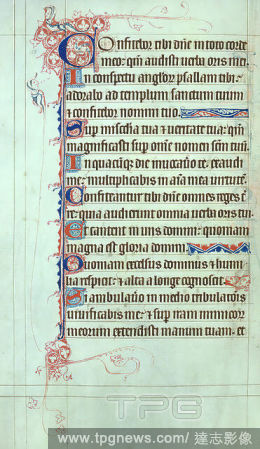 Confitebor tibi dñe in toto corde
meo: qm̄ audisti uerba oris mei.
In conspectu angelor psallam tibi:
adorabo ad templum sanctum tuum
confitebor nomini tuo.
Sup misc̄dia tua et ueritate tua: qm̄
magnificasti sup om̄e nomen scm̄ tuū.
In quacūq; die inuocauero te exaudi
me: multiplicabis in aīa mea uirtutē.
Confiteantur tibi dñe omnes reges t̄re
quia audierunt omnia uerba oris tui.
Et cantent in uiis domini: quoniam
magna est gloria domini.
Quoniam excelsus dominus et humi
lia respicit: et alta a longe cognoscit.
Si ambulauero in medio tribulacōis
uiuificabis me: et sup iram inimicor
meorum extendisti manum tuam. et
TPG
www.tpgnews.com / 達志影像